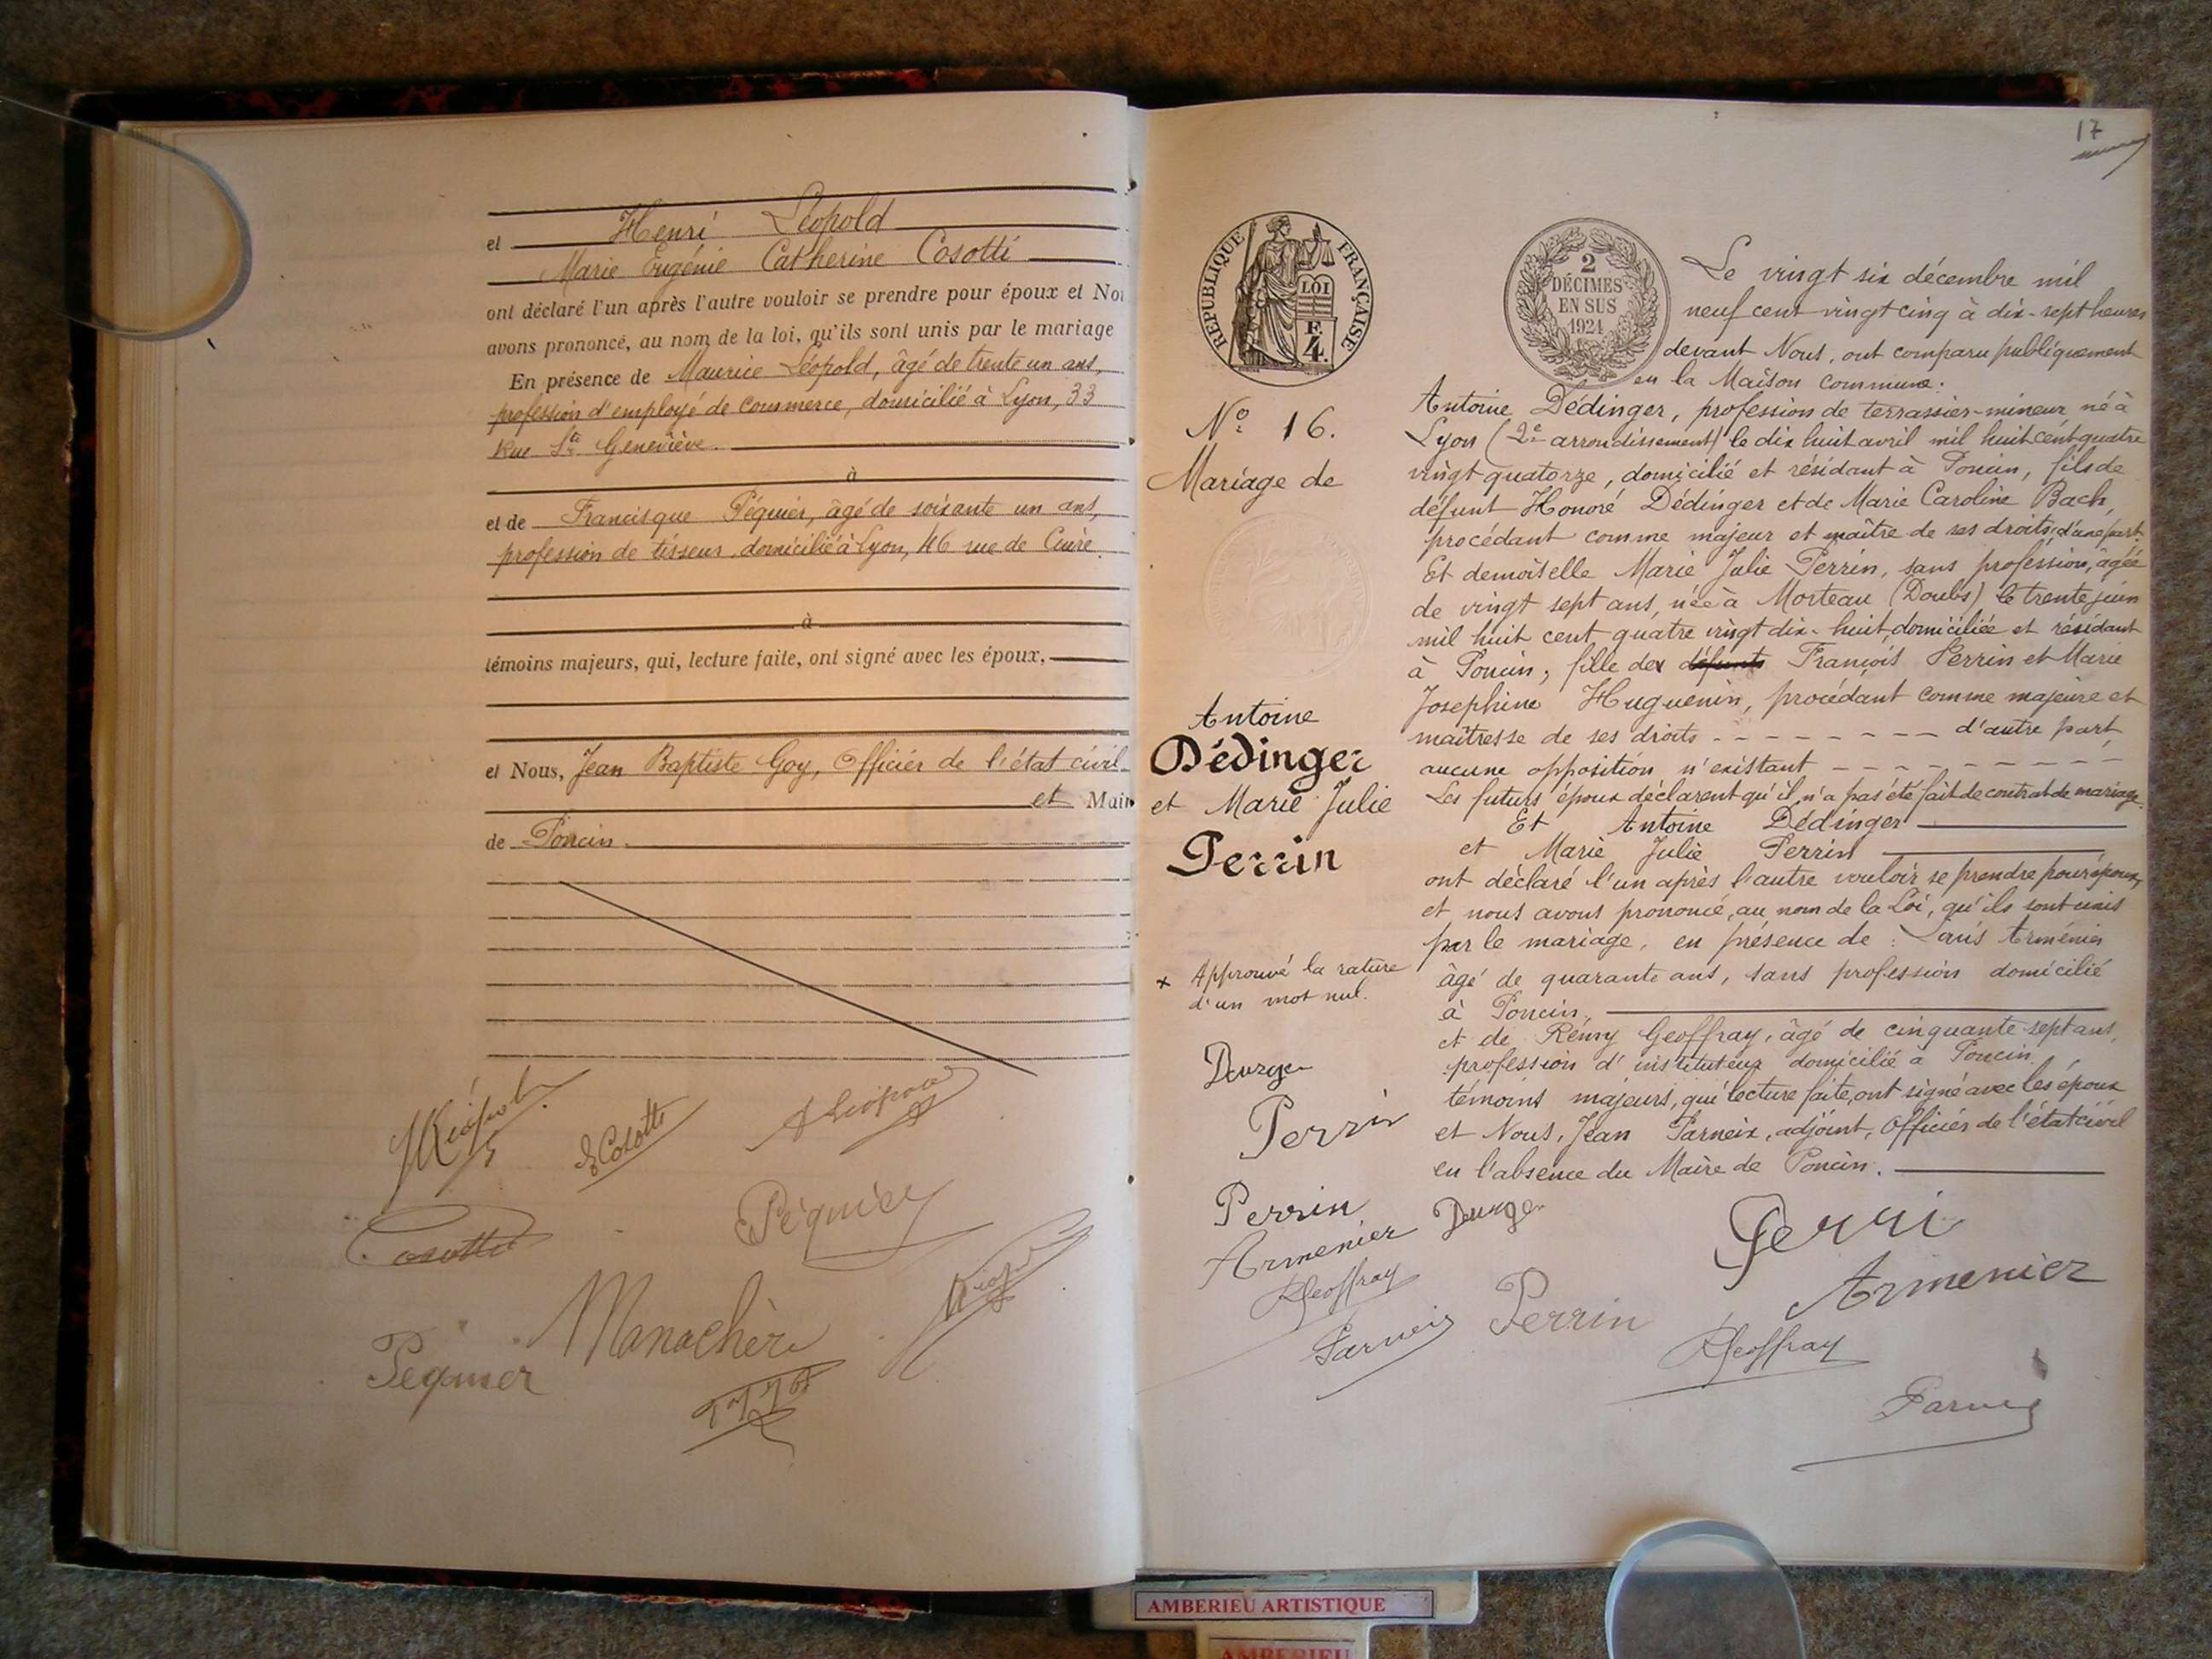 et Henri Léopold
Marie Eugénie Catherine Cosotti
ont déclaré l'un après l'autre vouloir se prendre pour époux et No
avons prononcé, au nom de la loi, qu'ils sont unis par le mariage
En présence de Maurice Léopold, âgé de trente un ans,
profession d'employé de commerce, domicilié à Lyon, 33
Rue Ste Geneviève.
à
et de Francisque Péguier, âgé de soixante un ans,
profession de tisseur, domicilié à Lyon, 46 rue de Cuire.
à
témoins majeurs, qui, lecture faite, ont signé avec les époux,
et Nous, Jean Baptiste Goy, Officier de l'état civil
et Mair
de Poncin.
E Cosotti
Péguier
Cosotti
Manachère
Péguier
17
REPUBLIQUE FRANÇAISE
LOI
F.
4.
2
DÉCIMES
EN SUS
1924
No 16.
Mariage de
Antoine
Dédinger
et Marie Julie
Perrin
x Approuvé la rature
d'un mot nul.
Perrin
Perrin
Armenier
RGeoffray
Parneix
Le vingt six décembre mil
neuf cent vingt cinq à dix-sept heures
devant Nous, ont comparu publiquement
en la Maison commune.
Antoine Dédinger, profession de terrassier-mineur né à
Lyon (2e arrondissement) le dix huit avril mil huit cent quatre
vingt quatorze, domicilié et résidant à Poncin, fils de
défunt Honoré Dédinger et de Marie Caroline Bach,
procédant comme majeur et maître de ses droits, d'une part.
Et demoiselle Marie Julie Perrin, sans profession, âgée
de vingt sept ans, née à Morteau (Doubs) le trente juin
mil huit cent quatre vingt dix-huit, domiciliée et résidant
à Poncin, fille de x défunts François Perrin et Marie
Josephine Huguenin, procédant comme majeure et
maîtresse de ses droits - - - - - - - - d'autre part,
aucune opposition n'existant - - - - - - - - -
Les futurs époux déclarent qu'il n'a pas été fait de contrat de mariage.
Et Antoine Dédinger
et Marie Julie Perrin
ont déclaré l'un après l'autre vouloir se prendre pour époux,
et nous avons prononcé, au nom de la Loi, qu'ils sont unis
par le mariage, en présence de : Louis Arménier
âgé de quarante ans, sans profession domicilié
à Poncin,
et de Rémy Geoffray, âgé de cinquante sept ans,
profession d'instituteur domicilié à Poncin.
témoins majeurs, qui lecture faite, ont signé avec les époux
et Nous, Jean Parneix, adjoint, Officier de l'état civil
en l'absence du Maire de Poncin.
Perri
Armenier
Perrin
RGeoffray
Parneix
AMBERIEU ARTISTIQUE
AMBERIEU